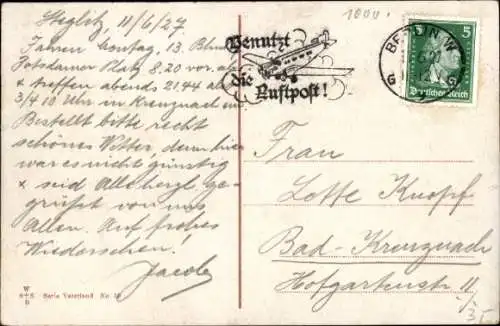 Steglitz, 11/6/27
Fahren Sontag, 13. 
Potsdamer Platz 8.20 vor. ab
& treffen abends 21.44 ab
3/4 10 Uhr in Kreuznach ein
Bestellt bitte recht
schönes Wetter, denn hier
war es nicht günstig
& seid Alle herzl. ge-
grüsst von uns
Allen. Auf frohes
Wiedersehen!
Jacob
W
S+S
B
Serie Vaterland No.
1000.
Benutzt
die
Luftpost!
BERLIN W
G G
5
Deutsches Reich
Frau
Lotte Knopf
Bad-Kreuznach
Hofgartenstr. 11